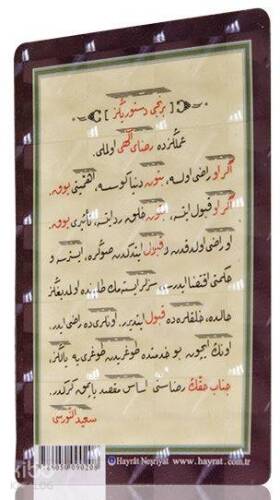 [ برنجى دستوريڭز ]
عملڭزده رضاى الٰهى اولملى.
اگر او راضى اولسه، بتون دنيا كوسسه، اهميتى يوق.
اگر او قبول ايتسه، بتون خلق رد ايتسه، تأثيرى يوق.
او راضى اولدقدن و قبول ايتدكدن صوڭره، ايسترسه و
حكمتى اقتضا ايدرسه، سزلر ايسته مك طلبنده اولمديغڭز
حالده، خلقلره ده قبول ايتديرر، اونلرى ده راضى ايدر.
اونڭ ايچون بو خدمتده طوغريدن طوغرى يه يالڭز،
جناب حقڭ رضاسنى اساس مقصد ياپمق گركدر.
سعيد النورسى
Hayrât Neşriyat www.hayrat.com.tr